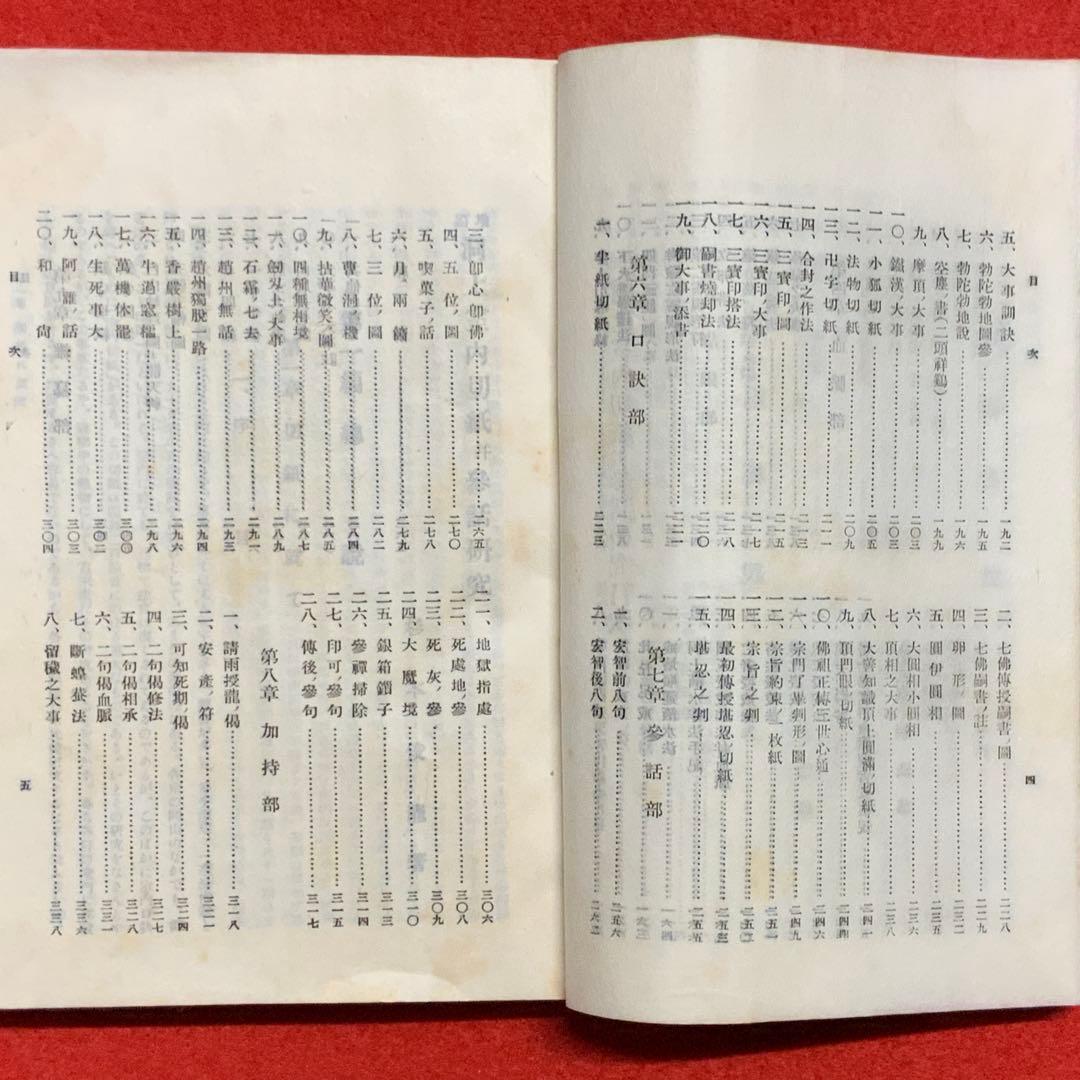 目次
四
五、大事訓訣……一九二
六、勃陀勃地圖參……一九五
七、勃陀勃地說……一九六
八、空塵ノ書(二頭祥鷄)……一九九
九、摩頂ノ大事……二〇三
一〇、鐵漢ノ大事……二〇三
一一、小狐切紙……二〇五
一二、法物切紙……二〇九
一三、卍字切紙……二一一
一四、合封之作法……二一三
一五、三寶印ノ圖……二一五
一六、三寶印ノ大事……二一七
一七、三寶印搭法……二一八
一八、嗣書燒却法……二二〇
一九、御大事ノ添書……二二一
第六章 口訣部
一、半紙切紙……二二三
二、七佛傳授嗣書ノ圖……二二八
三、七佛嗣書ノ註……二二九
四、卵形ノ圖……二三二
五、圓伊圓相……二三三
六、大圓相小圓相……二三六
七、頂相之大事……二三八
八、大善知識頂上圓滿ノ切紙……二四一
九、頂門眼ノ切紙……二四四
一〇、佛祖正傳三世心通……二四六
一一、宗門了畢判形ノ圖……二四九
一二、宗旨約束ノ一枚紙……二五一
一三、宗旨之判……二五二
一四、最初傳授堪忍ノ切紙……二五三
一五、堪忍之判……二五五
第七章 參話部
一、宏智前八句……二五六
二、宏智後八句……二六二
三、卽心卽佛……二六五
四、五位ノ圖……二七〇
五、喫菓子ノ話……二七八
六、月ノ兩箇……二七九
七、三位ノ圖……二八二
八、曹洞ノ機……二八四
九、拈華微笑ノ圖
一〇、四種無相境……二八七
一一、劔刃上ノ大事……二八九
一二、石霜ノ七去……二九一
一三、趙州無話……二九三
一四、趙州獨脫一路……二九四
一五、香嚴樹上……二九六
一六、牛過窓櫺……二九八
一七、萬機休罷……三〇〇
一八、生死事大……三〇二
一九、阿ノ話……三〇三
二〇、和尙……三〇四
二一、地獄指處……三〇六
二二、死處地ノ參……三〇八
二三、死灰ノ參……三〇九
二四、大魔境……三一〇
二五、銀箱鎖子……三一三
二六、參禪掃除……三一四
二七、印可ノ參句……三一五
二八、傳後ノ參句……三一七
第八章 加持部
一、請雨授龍ノ偈……三一八
二、安產ノ符……三二一
三、可知死期ノ偈……三二四
四、二句偈修法……三二七
五、二句偈相承……三二八
六、二句偈血脈……三三一
七、斷蝗蟲法……三三六
八、留穢之大事……三三八
目次
五